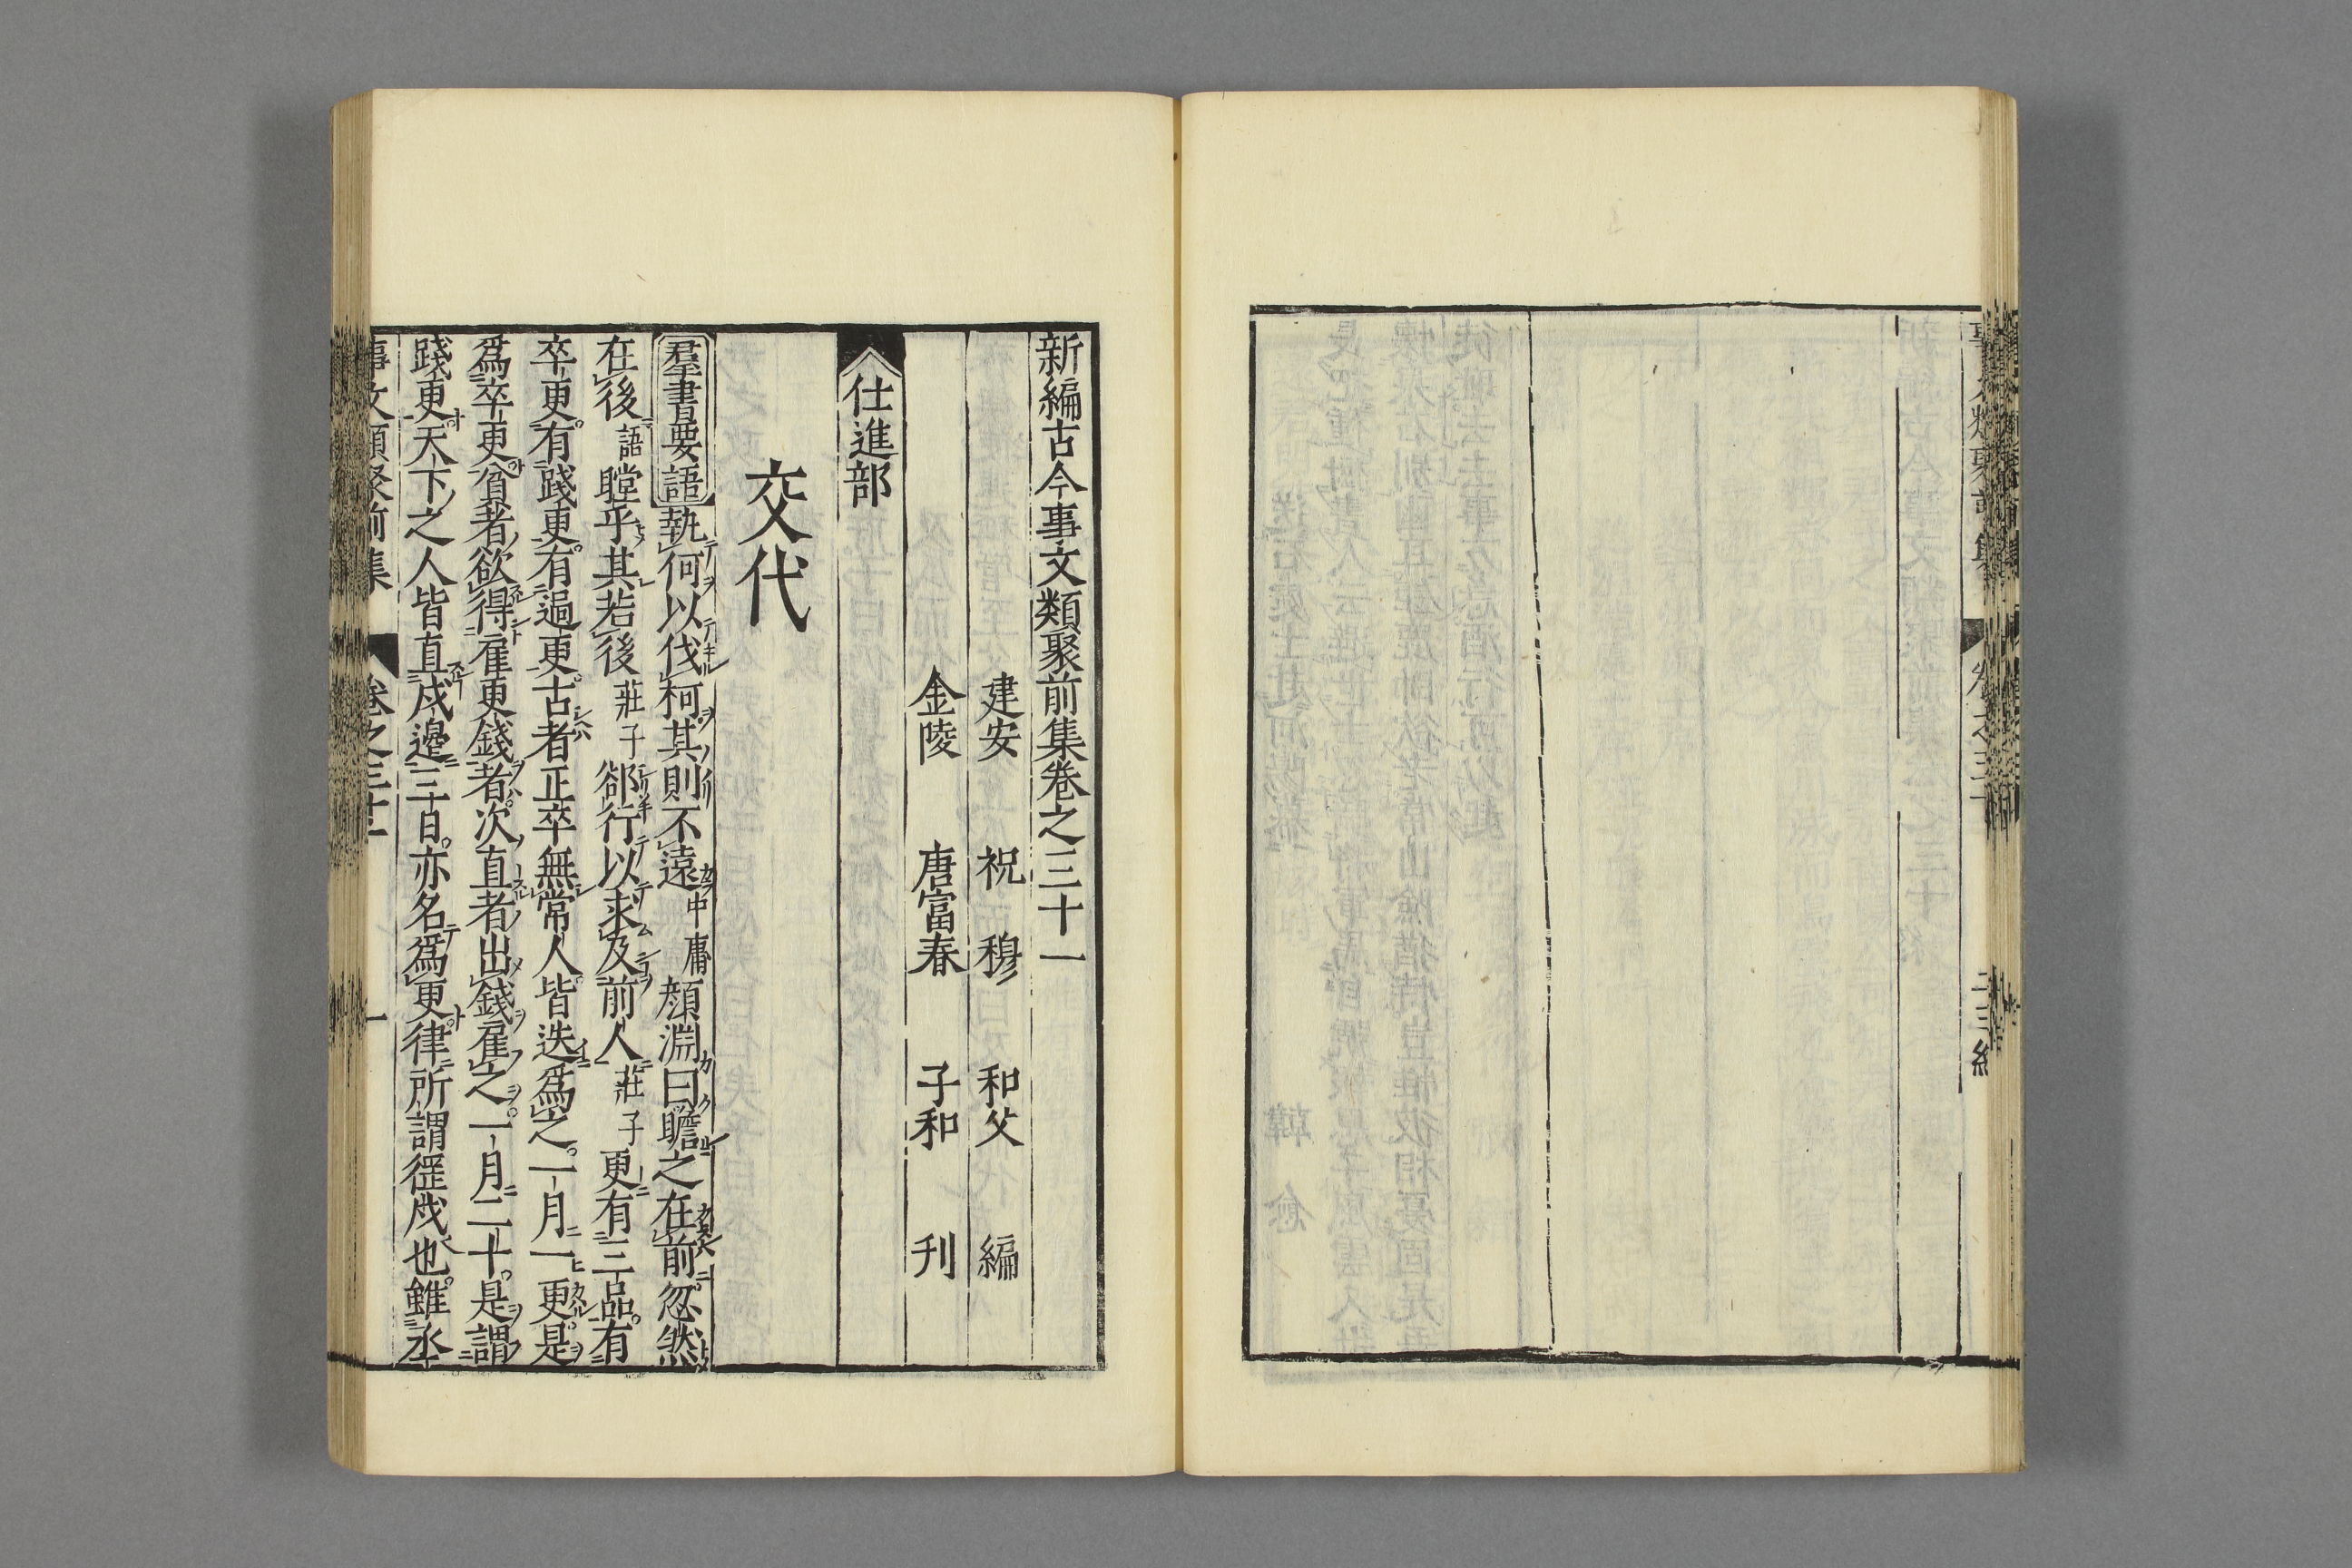 新編古今事文類聚前集卷之三十一
建安 祝 穆 和父 編
金陵 唐富春 子和 刊
仕進部
交代
羣書要語 執柯以伐柯其則不遠 中庸 顔淵曰瞻之在前忽然
在後 語 瞠乎其若後 莊子 郤行以求及前人 莊子 更有三品有
卒更有踐更有過更古者正卒無常人皆迭爲之一月一更是
爲卒更貧者欲得雇更錢者次直者出錢雇之一月二千是謂
踐更天下之人皆直戍邊三日亦名爲更律所謂徭戍也雖丞
事文類聚前集 卷之三十一 一